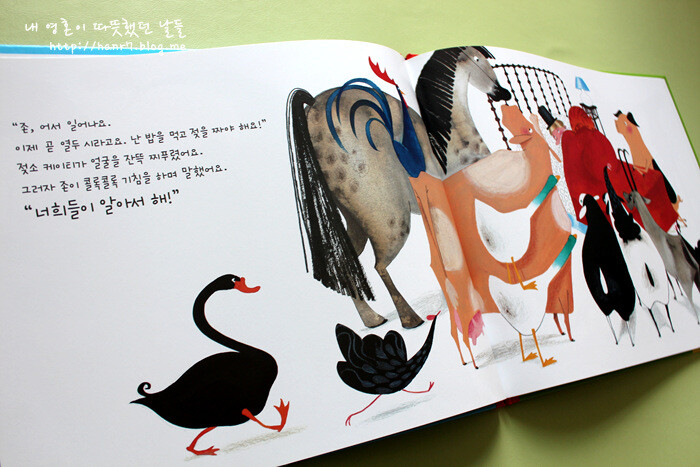 내 영혼이 따뜻했던 날들
http://hanr7.blog.me
"존, 어서 일어나요.
이제 곧 열두 시라고요. 난 밥을 먹고 젖을 짜야 해요!"
젖소 케이티가 얼굴을 잔뜩 찌푸렸어요.
그러자 존이 콜록콜록 기침을 하며 말했어요.
"너희들이 알아서 해!"